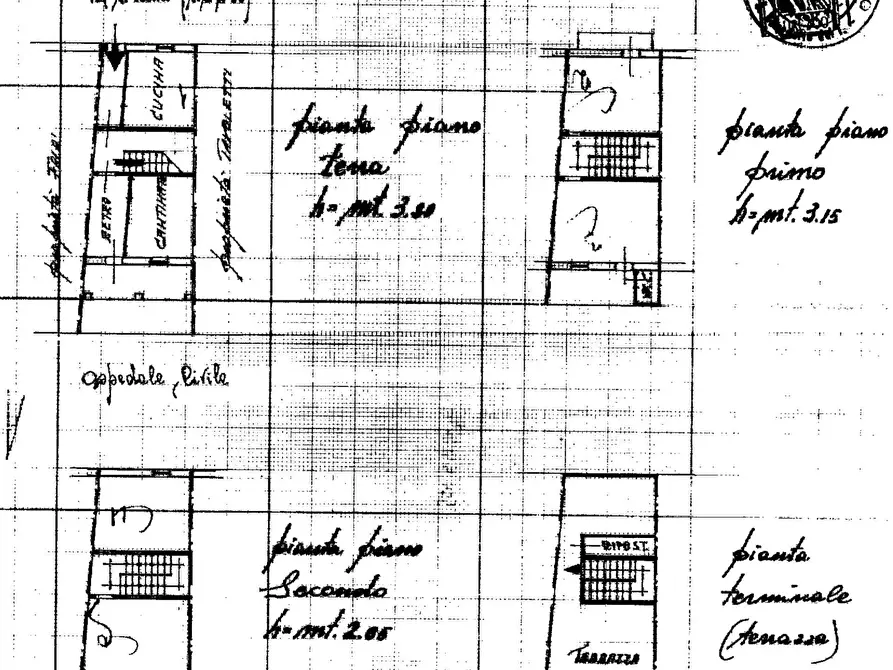 CUCINA
proprietà TAVOLETTI
RETRO
CANTINA
pianta piano
terra
h= mt. 3.20
pianta piano
primo
h= mt. 3.15
W.C.
ospedale civile
pianta piano
Secondo
h= mt. 2.85
RIPOST.
TERRAZZA
pianta
terminale
(terrazza)